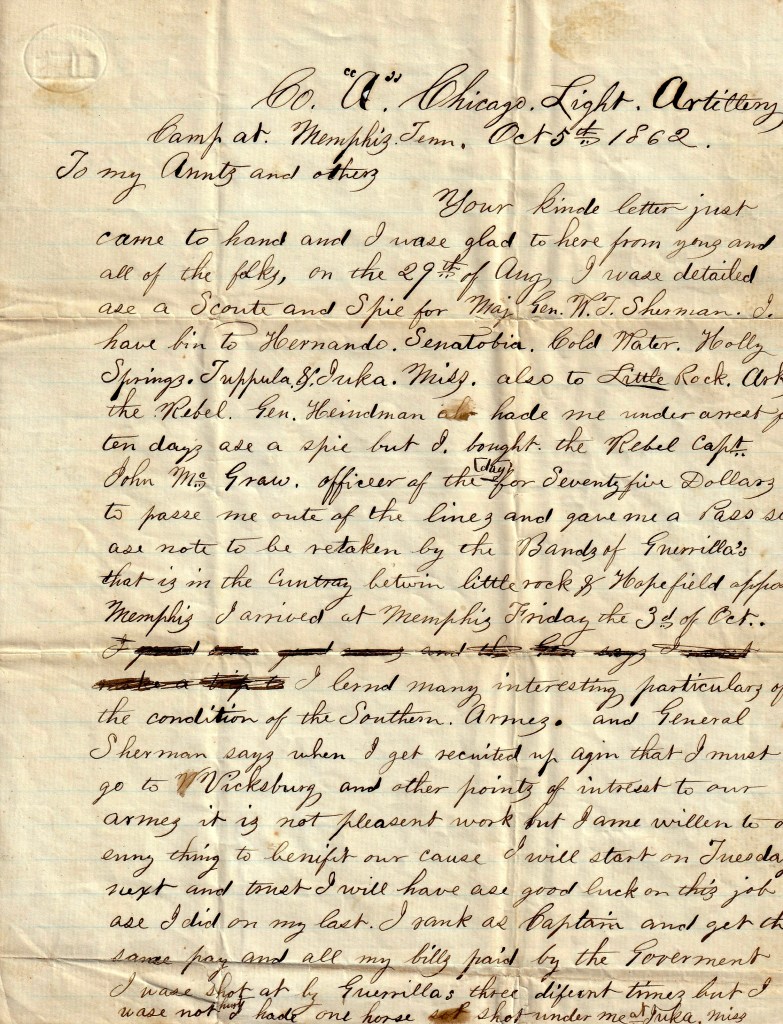 Co. "A". Chicago. Light. Artillery
Camp at. Memphiz. Tenn. Oct 5th 1862.
To my Anntz and otherz
Your kinde letter just
came to hand and I wase glad to here from youz and
all of the folks, on the 29th of Aug I wase detailed
ase a Scoute and Spie for Maj. Gen. W. T. Sherman. I.
have bin to Hernando. Senatobia. Cold Water. Holly
Springz. Tuppula. & Iuka. Miss. also to Little Rock. Ark
the Rebel. Gen. Heindman hade me under arrest
ten dayz ase a spie but I. bought. the Rebel Capt.
John Mc Graw. officeer of the day for Seventy five Dollarz
to passe me oute of the linez and gave me a Pass
ase note to be retaken by the Bandz of Guerrilla's
that iz in the Cuntray betwin little rock & Hopefield
Memphiz I arrived at Memphiz Friday the 3d of Oct..
I good and the Gen says I must
make a trip to I lernd many interesting particularz
the condition of the Southern. Armez. and General
Sherman sayz when I get recuited up agin that I must
go to Vicksburg and other pointz of intresst to our
armez it iz not pleasent work but I ame willen to
enny thing to benifit our cause I will start on Tuesday
next and trust I will have ase good luck on thiz job
ase I did on my last. I rank as Captain and get
same pay and all my billz paid by the Goverment
I wase shot at by Guerrillas three difernt timez but I
wase not hurt I hade one horse shot under me at Iuka, Miss